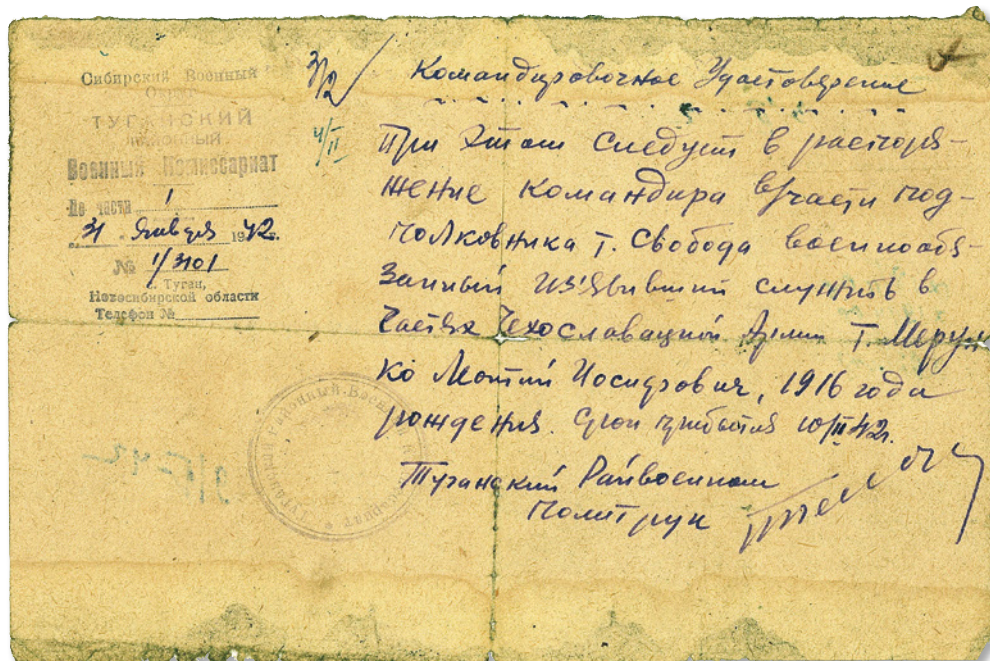 Сибирский Военный
Округ
ТУГАНСКИЙ
РАЙОННЫЙ
Военный Комиссариат
По части 1
„31“ Января 1942г.
№ 1/3101
с. Туган,
Новосибирской области
Телефон №
3/2
4/II
Командировочное Удостоверение
При этом следует в распоря-
жение командира в/части под-
полковника т. Свобода военнообя-
занный из'явивший служить в
частях Чехославацкой Армии т. Меруж
ко Мотий Иосифович, 1916 года
рождения. Срок прибытия 10/II 42г.
Туганский Райвоенком
Политрук
9/II-42